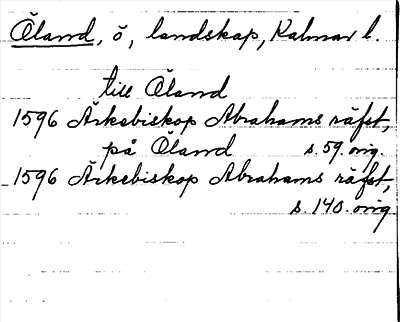 Öland, ö, landskap, Kalmar l.
till Öland
1596 Ärkebiskop Abrahams räfst,
på Öland s. 59. orig.
1596 Ärkebiskop Abrahams räfst,
s. 140. orig.